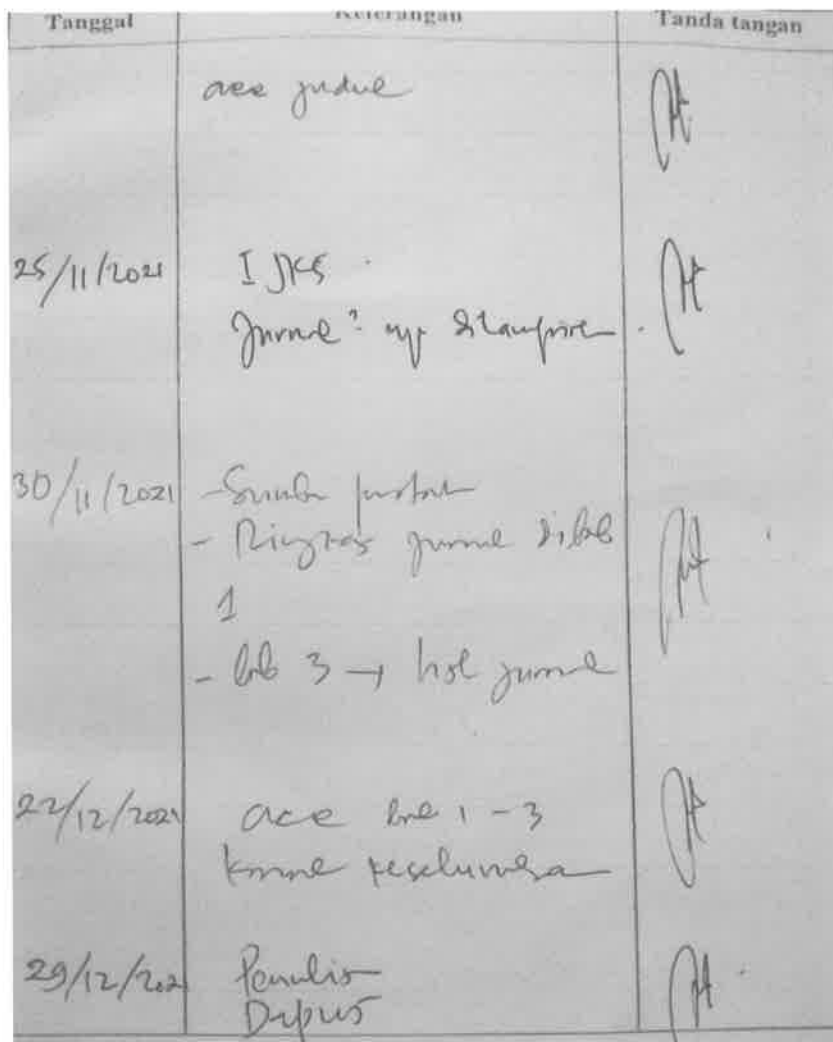 Tanggal Keterangan Tanda tangan
acc judul
25/11/2021 I JKS
Jurnal² yg dilampirkan.
30/11/2021 - Sumber pustaka
- Ringkas jurnal di bab
1
- bab 3 → hsl jurnal
22/12/2021 acc bab 1 - 3
keseluruhan
29/12/202 Penulis
Dapus